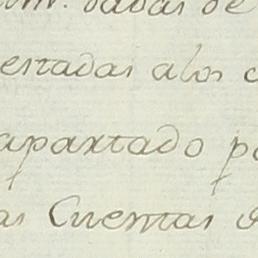 dadas de
estadas alos
apartado p
as Cuentas d